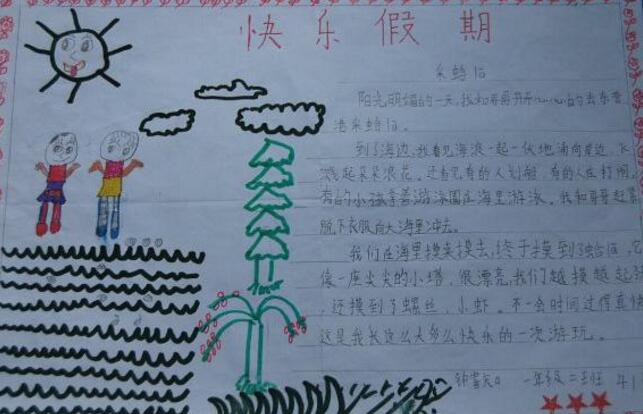 快乐假期
采蛤蜊
阳光明媚的一天,我和哥哥开开 的去东营
港采蛤蜊。
到了海边,我看见海浪一起一伏地涌向岸边,飞
溅起朵朵浪花,还看见有的人划艇,有的人在打闹,
有的小孩拿着游泳圈在海里游泳。我和哥哥赶
脱下衣服向大海里冲去。
我们在海里摸来摸去,终于摸到了蛤蜊,它
像一座尖尖的小塔,很漂亮。我们越摸越起
还摸到了螺丝、小虾。不一会时间过得真
这是我长这么大多么快乐的一次游玩。
一年级二班 41